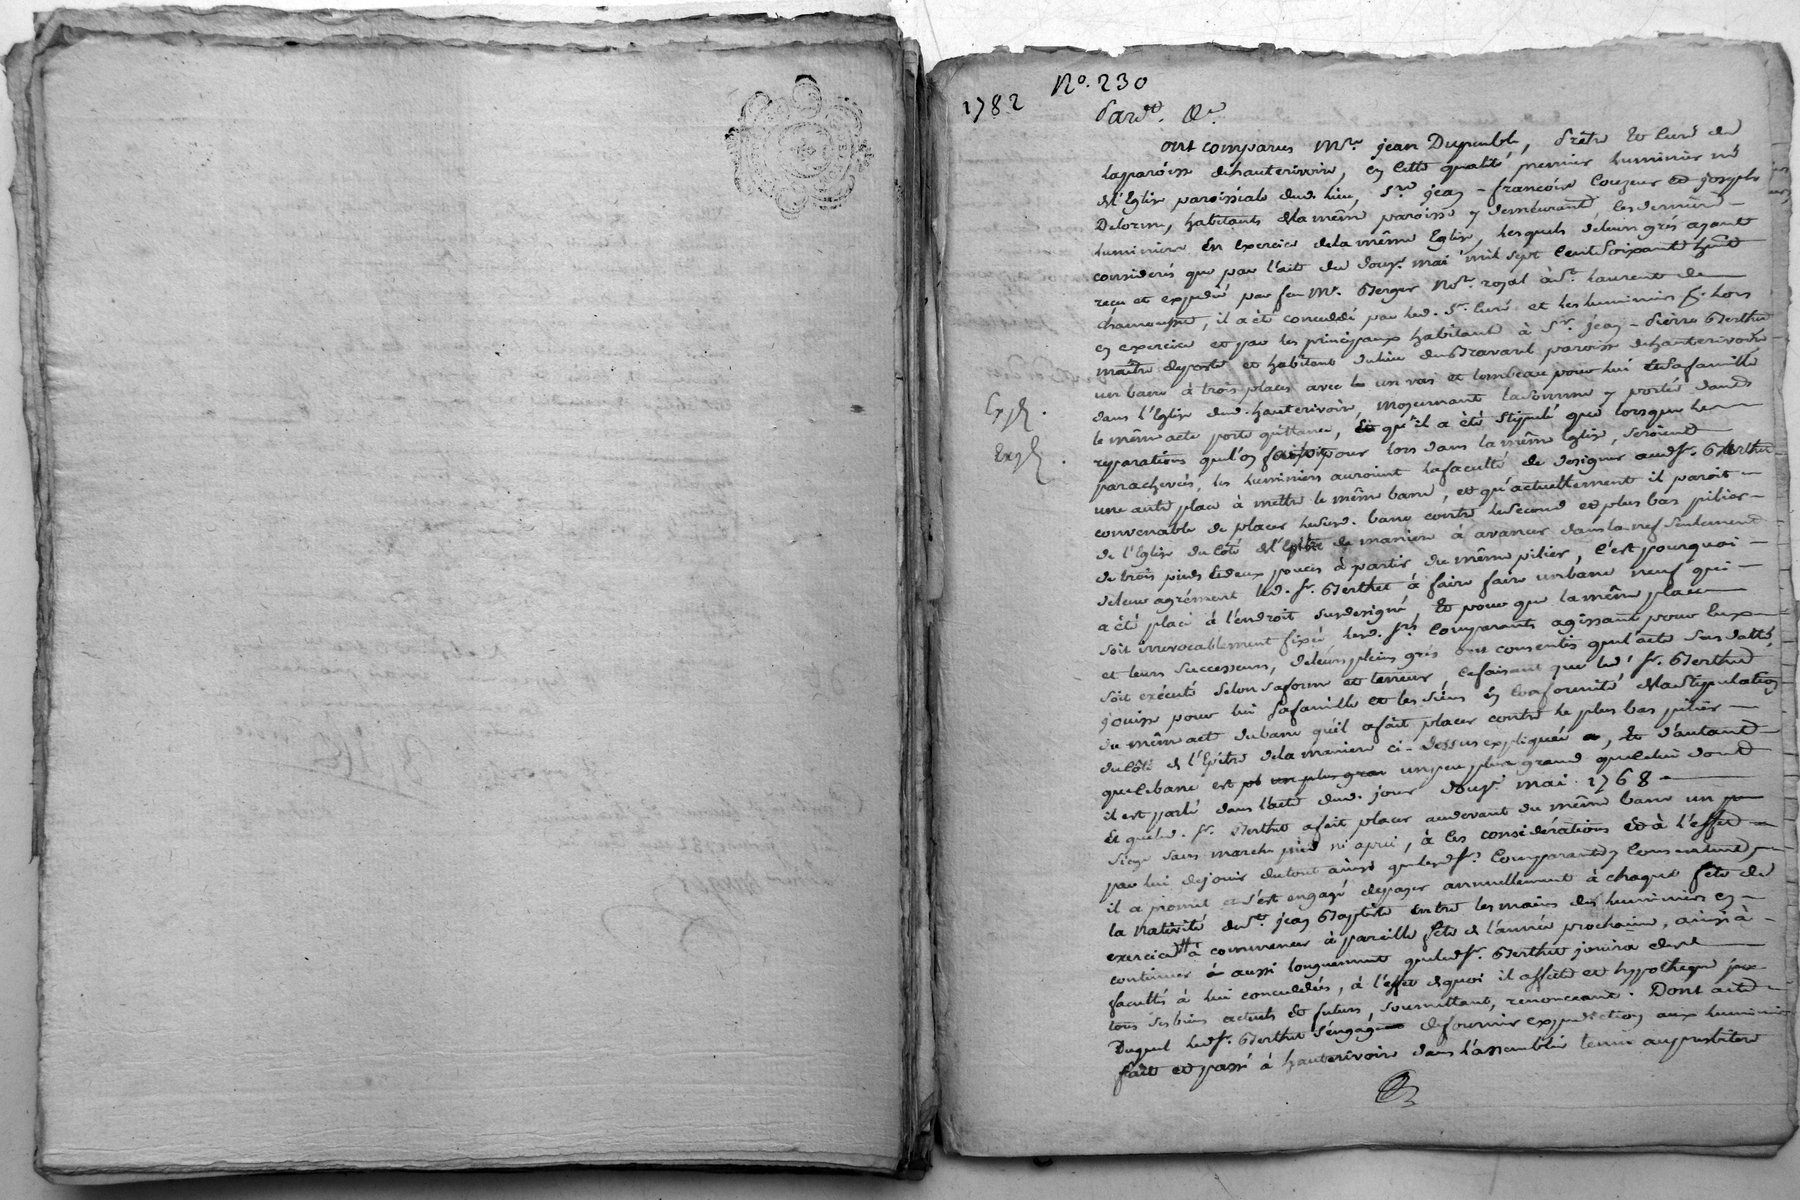 1782 No. 230
Pard.t &c.
ont comparus Mre. jean Dupeuble, Prêtre et Curé de
laparoisse dehauterivoire, en cette qualité premier luminier né
del'Eglise paroissiale dud. lieu, Sr. jean-françois Couzeur et joseph
Delorme, habitants delamême paroisse y demeurant, lesderniers
luminiers En Exercice delamême Eglise, Lesquels deleurs grés ayant
considerés que par l'acte du douze mai mil sept Centsoixante huit
reçu et expedié par feu Me. Berger Nore. royal à St. Laurent de
chamousset, il a été concédé par led. Sr. Curé et les luminiers p. lors
en exercice et par les principaux habitants à Sr. jean-Pierre Berthet
maître deposte et habitant dulieu du Bravard paroisse dehauterivoire
un banc à trois places avec un vas et tombeau pour lui et safamille
dans l'Eglise dud. hauterivoire, moyennant lasomme y portée dont
le même acte porte quittance, et qu'il a été stipulé que lorsque les
reparations quel'on faisoit pour lors dans la même Eglise, seroient
parachevées, les luminiers auroient lafaculté de designer aud. Sr. Berthet
une autre place à mettre le même banc, et qu'actuellement il paroit
convenable de placer led. banc contre lesecond et plus bas pilier
de l'Eglise du côté del'Epitre de maniere à avancer dans la nef seulement
de trois pieds et deux pouces à partir du même pilier, C'est pourquoi
deleur agrément led. Sr. Berthet à faire faire un banc neuf qui
a été placé à l'endroit susdesigné, et pour que la même place
soit irrevocablement fixée lesd. Srs. Comparants agissant pour Eux
et leurs Successeurs, deleurs pleins grés ont consentis quel'acte sus datté
soit exécuté selon saforme et teneur, cefaisant que led. Sr. Berthet
jouisse pour lui safamille et les siens en conformité delastipulation
du même acte dubanc qu'il afait placer contre le plus bas pilier
ducôté de l'Epitre delamaniere ci-dessus expliquée, et d'autant
quelebanc est un peu plus grand quecelui dont
il est parlé dans l'acte dud. jour douze mai 1768
Et queled. Sr. Berthet afait placer audevant du même banc un
siege sans marche pied ni apui, à ces considérations et à l'effet
par lui dejouir dutout ainsi quelesd. Srs. Comparants y Consentent,
il a promit et s'est engagé depayer annuellement à chaque fête de
la Nativité de St. jean Baptiste entre les mains des luminiers en
exercice à commencer à pareille fête de l'année prochaine, ainsi à
continuer à aussi longuement queled. Sr. Berthet jouira desd.
facultés à lui concédées, à l'effet dequoi il affecte et hypotheque
tous ses biens actuels et futurs, soumettant, renonceant. Dont acte
Duquel led. Sr. Berthet s'engage defournir expedition aux luminiers
fait et passé à hauterivoire dans l'assemblée tenue au presbitere
Exp.
Exp.